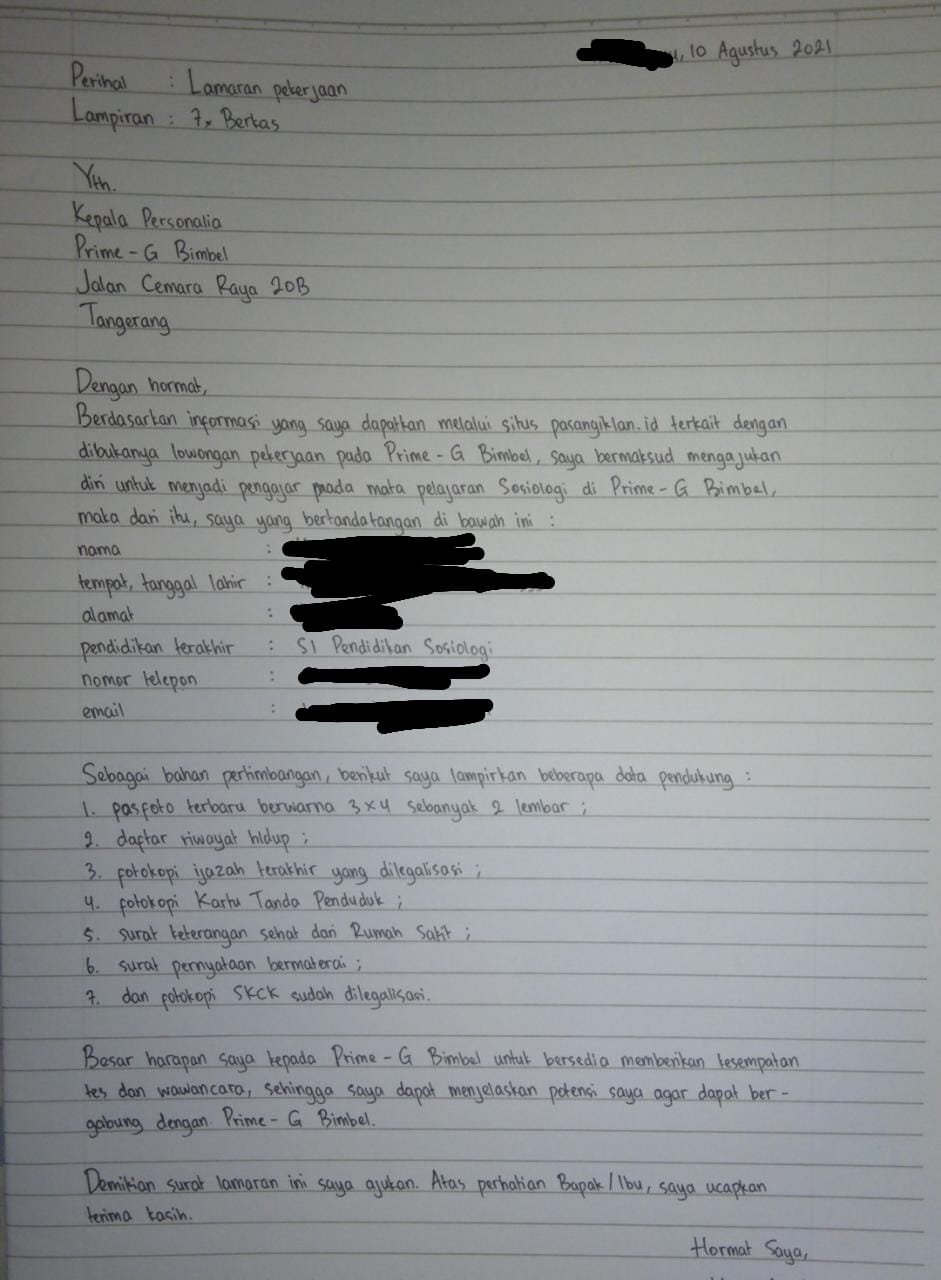 , 10 Agustus 2021
Perihal : Lamaran pekerjaan
Lampiran : 7 Berkas
Yth.
Kepala Personalia
Prime-G Bimbel
Jalan Cemara Raya 20B
Tangerang
Dengan hormat,
Berdasarkan informasi yang saya dapatkan melalui situs pasangiklan.id terkait dengan
dibukanya lowongan pekerjaan pada Prime-G Bimbel, saya bermaksud mengajukan
diri untuk menjadi pengajar pada mata pelajaran Sosiologi di Prime-G Bimbel,
maka dari itu, saya yang bertandatangan di bawah ini :
nama :
tempat, tanggal lahir :
alamat :
pendidikan terakhir : S1 Pendidikan Sosiologi
nomor telepon :
email :
Sebagai bahan pertimbangan, berikut saya lampirkan beberapa data pendukung :
1. pasfoto terbaru berwarna 3x4 sebanyak 2 lembar ;
2. daftar riwayat hidup ;
3. fotokopi ijazah terakhir yang dilegalisasi ;
4. fotokopi Kartu Tanda Penduduk ;
5. surat keterangan sehat dari Rumah Sakit ;
6. surat pernyataan bermaterai ;
7. dan fotokopi SKCK sudah dilegalisasi.
Besar harapan saya kepada Prime-G Bimbel untuk bersedia memberikan kesempatan
tes dan wawancara, sehingga saya dapat menjelaskan potensi saya agar dapat ber-
gabung dengan Prime-G Bimbel.
Demikian surat lamaran ini saya ajukan. Atas perhatian Bapak/Ibu, saya ucapkan
terima kasih.
Hormat Saya,